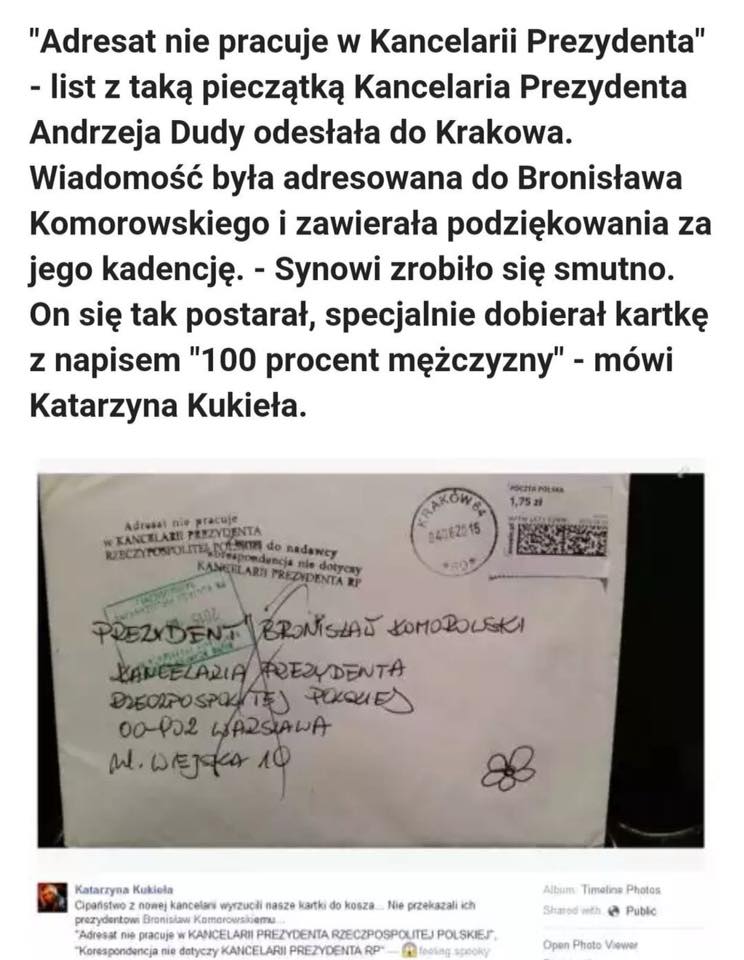 "Adresat nie pracuje w Kancelarii Prezydenta"
- list z taką pieczątką Kancelaria Prezydenta
Andrzeja Dudy odesłała do Krakowa.
Wiadomość była adresowana do Bronisława
Komorowskiego i zawierała podziękowania za
jego kadencję. - Synowi zrobiło się smutno.
On się tak postarał, specjalnie dobierał kartkę
z napisem "100 procent mężczyzny" - mówi
Katarzyna Kukieła.
POCZTA POLSKA
1,75 zł
KRAKÓW 64
Adresat nie pracuje
w KANCELARII PREZYDENTA
RZECZYPOSPOLITEJ POLSKIEJ
do nadawcy
korespondencja nie dotyczy
KANCELARII PREZYDENTA RP
PREZYDENT BRONISŁAW KOMOROWSKI
KANCELARIA PREZYDENTA
RZECZPOSPOLITEJ POLSKIEJ
00-902 WARSZAWA
ul. WIEJSKA 10
Katarzyna Kukieła
Cipaństwo z nowej kancelarii wyrzucili nasze kartki do kosza... Nie przekazali ich
prezydentowi Bronisław Komorowskiemu...
"Adresat nie pracuje w KANCELARII PREZYDENTA RZECZPOSPOLITEJ POLSKIEJ",
"Korespondencja nie dotyczy KANCELARII PREZYDENTA RP" — feeling spooky
Album: Timeline Photos
Shared with: Public
Open Photo Viewer